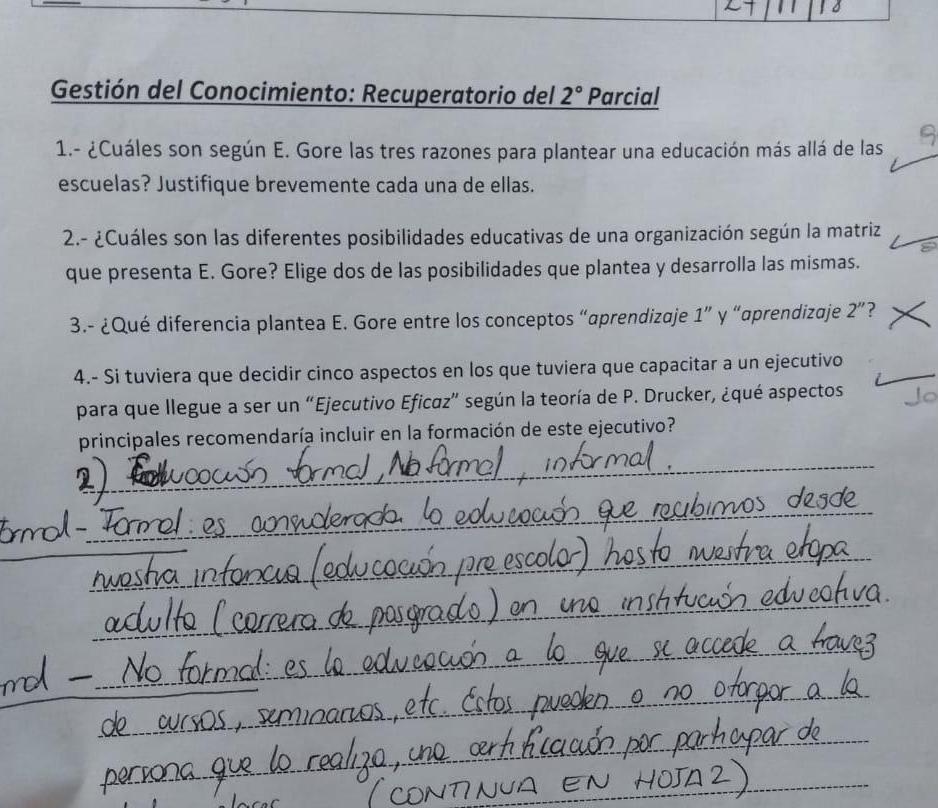 27/11/18
Gestión del Conocimiento: Recuperatorio del 2° Parcial
1.- ¿Cuáles son según E. Gore las tres razones para plantear una educación más allá de las
escuelas? Justifique brevemente cada una de ellas.
2.- ¿Cuáles son las diferentes posibilidades educativas de una organización según la matriz
que presenta E. Gore? Elige dos de las posibilidades que plantea y desarrolla las mismas.
3.- ¿Qué diferencia plantea E. Gore entre los conceptos “aprendizaje 1” y “aprendizaje 2”?
4.- Si tuviera que decidir cinco aspectos en los que tuviera que capacitar a un ejecutivo
para que llegue a ser un “Ejecutivo Eficaz” según la teoría de P. Drucker, ¿qué aspectos
principales recomendaría incluir en la formación de este ejecutivo?
2) Educación formal, No formal, informal.
- Formal: es considerada la educación que recibimos desde
nuestra infancia (educación preescolar) hasta nuestra etapa
adulta (carrera de posgrado) en una institución educativa.
- No formal: es la educación a la que se accede a travez
de cursos, seminarios, etc. Estos pueden o no otorgar a la
persona que lo realiza, una certificación por participar de
(CONTINUA EN HOJA 2)